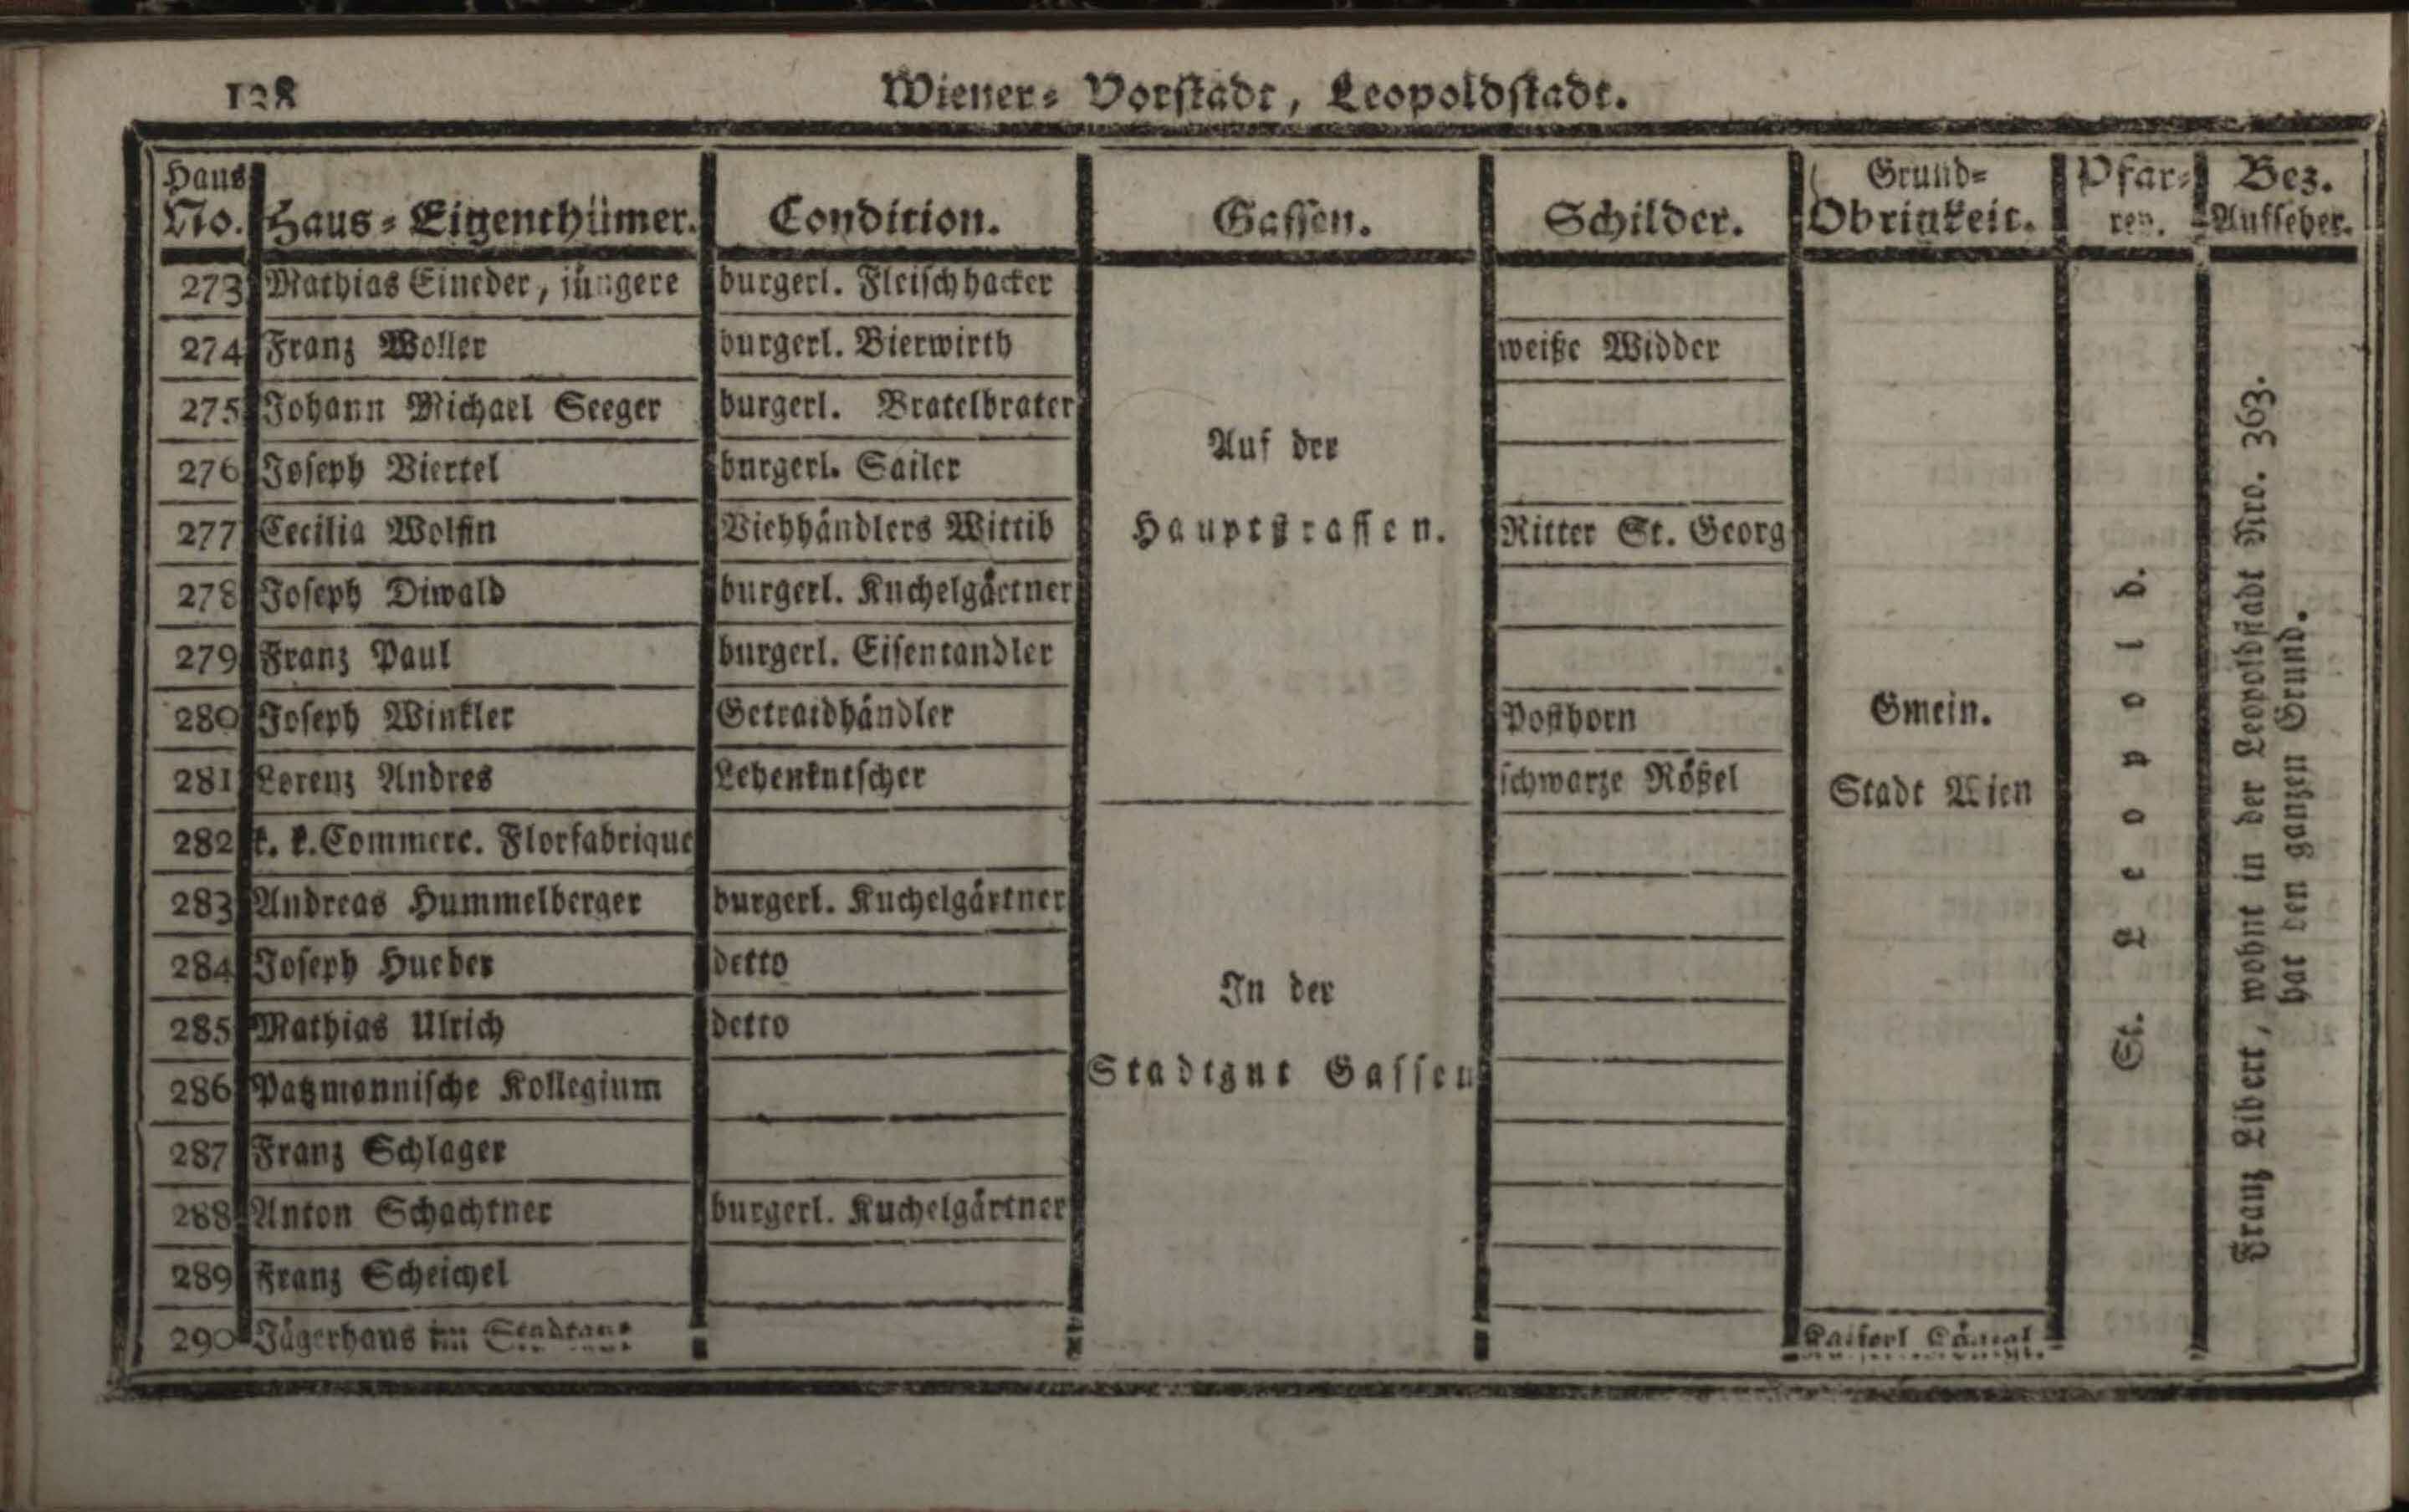 128 Wiener- Vorstadt, Leopoldstadt.
Haus No. Haus-Eigenthümer. Condition. Gassen. Schilder. Grund-Obrigkeit. Pfar-ren. Bez. Aufseher.
273 Mathias Eineder, jüngere burgerl. Fleischhacker
274 Franz Woller burgerl. Bierwirth weiße Widder
275 Johann Michael Seeger burgerl. Bratelbrater
276 Joseph Viertel burgerl. Sailer
277 Cecilia Wolfin Viehhändlers Wittib Ritter St. Georg
278 Joseph Diwald burgerl. Kuchelgärtner
279 Franz Paul burgerl. Eisentandler
280 Joseph Winkler Getraidhändler Posthorn
281 Lorenz Andres Lehenkutscher schwarze Rößel
282 k. k. Commerc. Florfabrique
283 Andreas Hummelberger burgerl. Kuchelgärtner
284 Joseph Hueber detto
285 Mathias Ulrich detto
286 Patzmannische Kollegium
287 Franz Schlager
288 Anton Schachtner burgerl. Kuchelgärtner
289 Franz Scheichel
290 Jägerhaus im Stadtgut
Auf der
Hauptstrassen.
In der
Stadtgut Gassen
Gmein.
Stadt Wien
Kaiserl Königl.
St. Leopold.
Franz Libert, wohnt in der Leopoldstadt Nro. 363.
hat den ganzen Grund.